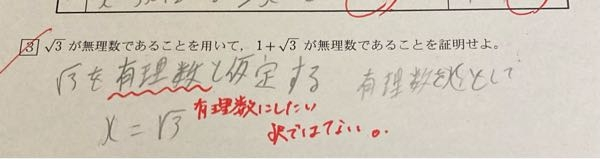 3 √3 が無理数であることを用いて，1+√3 が無理数であることを証明せよ。
√3を有理数と仮定する 有理数をxとして
x = √3
有理数にしたい
訳ではない。